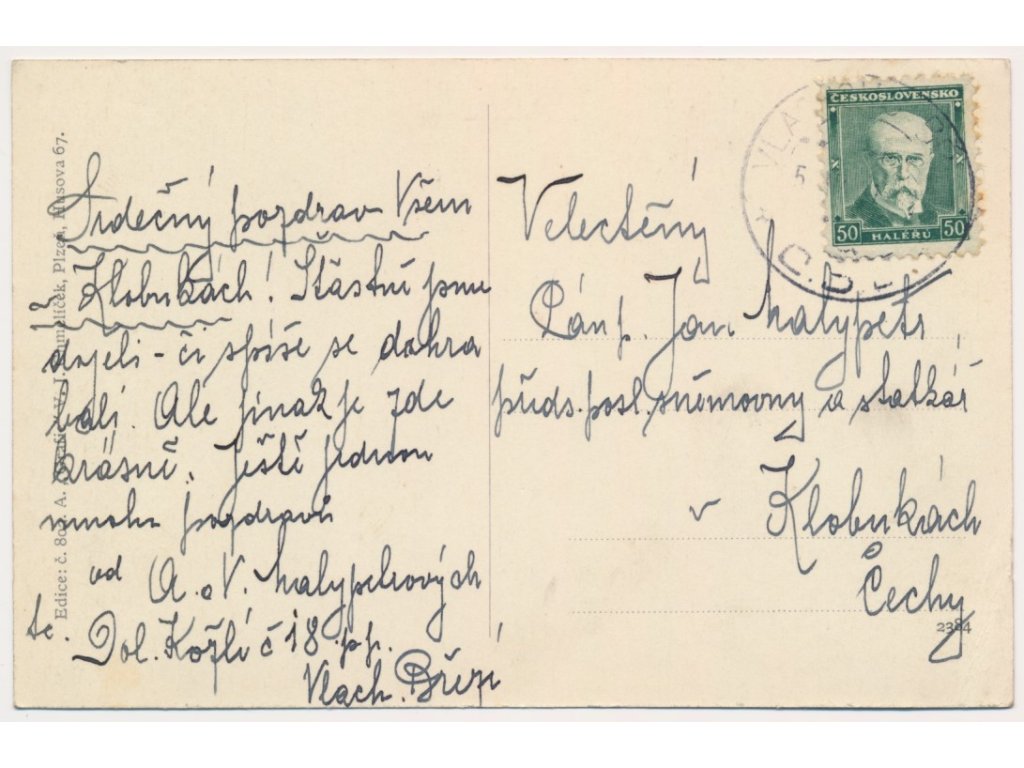 Srdečný pozdrav Všem
v Klobukách! Šťastni jsme
dojeli - či spíše se dohra
bali. Ale jinak je zde
krásně. Ještě jednou
mnoho pozdravů
od A. a V. Malypetrových
Dol. Kožlí č 18 p.p.
Vlach. Březí
Edice: č. Plzeň, Husova 67.
ČESKOSLOVENSKO
50 HALÉŘŮ 50
VLA
5
Velectěný
Pán p. Jan Malypetr,
předs. posl. sněmovny a statkář
v Klobukách
Čechy
2384